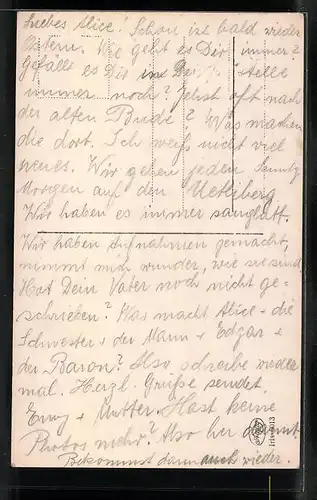 Liebes Alice! Schon ist bald wieder
Ostern. Wie geht es Dir immer?
Gefällt es Dir in Der Stelle
immer noch? Gehst oft nach
der alten Bude? Was machen
die dort. Ich weiß nicht viel
neues. Wir gehen jeden Sonntg
Morgen auf den Uetliberg
Wir haben es immer sauglatt.
Wir haben Aufnahmen gemacht,
nimmt mich wunder, wie sie sind
Hat Dein Vater noch nicht ge-
schrieben? Was macht Alice + die
Schwester + der Mann + Edgar +
der Baron? Also schreibe wieder
mal. Herzl. Grüße sendet
Emy + Mutter. Hast keine
Photos mehr? Also her damit.
Bekommst dann auch wieder.
Iris 5013